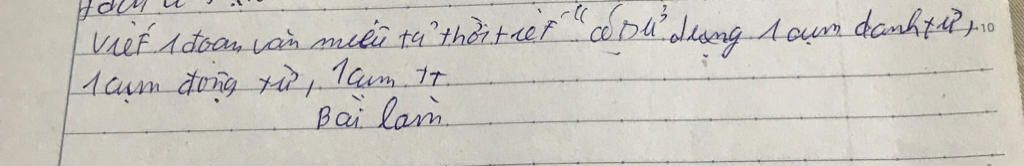 Viết 1 đoạn văn miêu tả thời tiết có sử dụng 1 cụm danh từ,
1 cụm động từ, 1 cụm tt
Bài làm